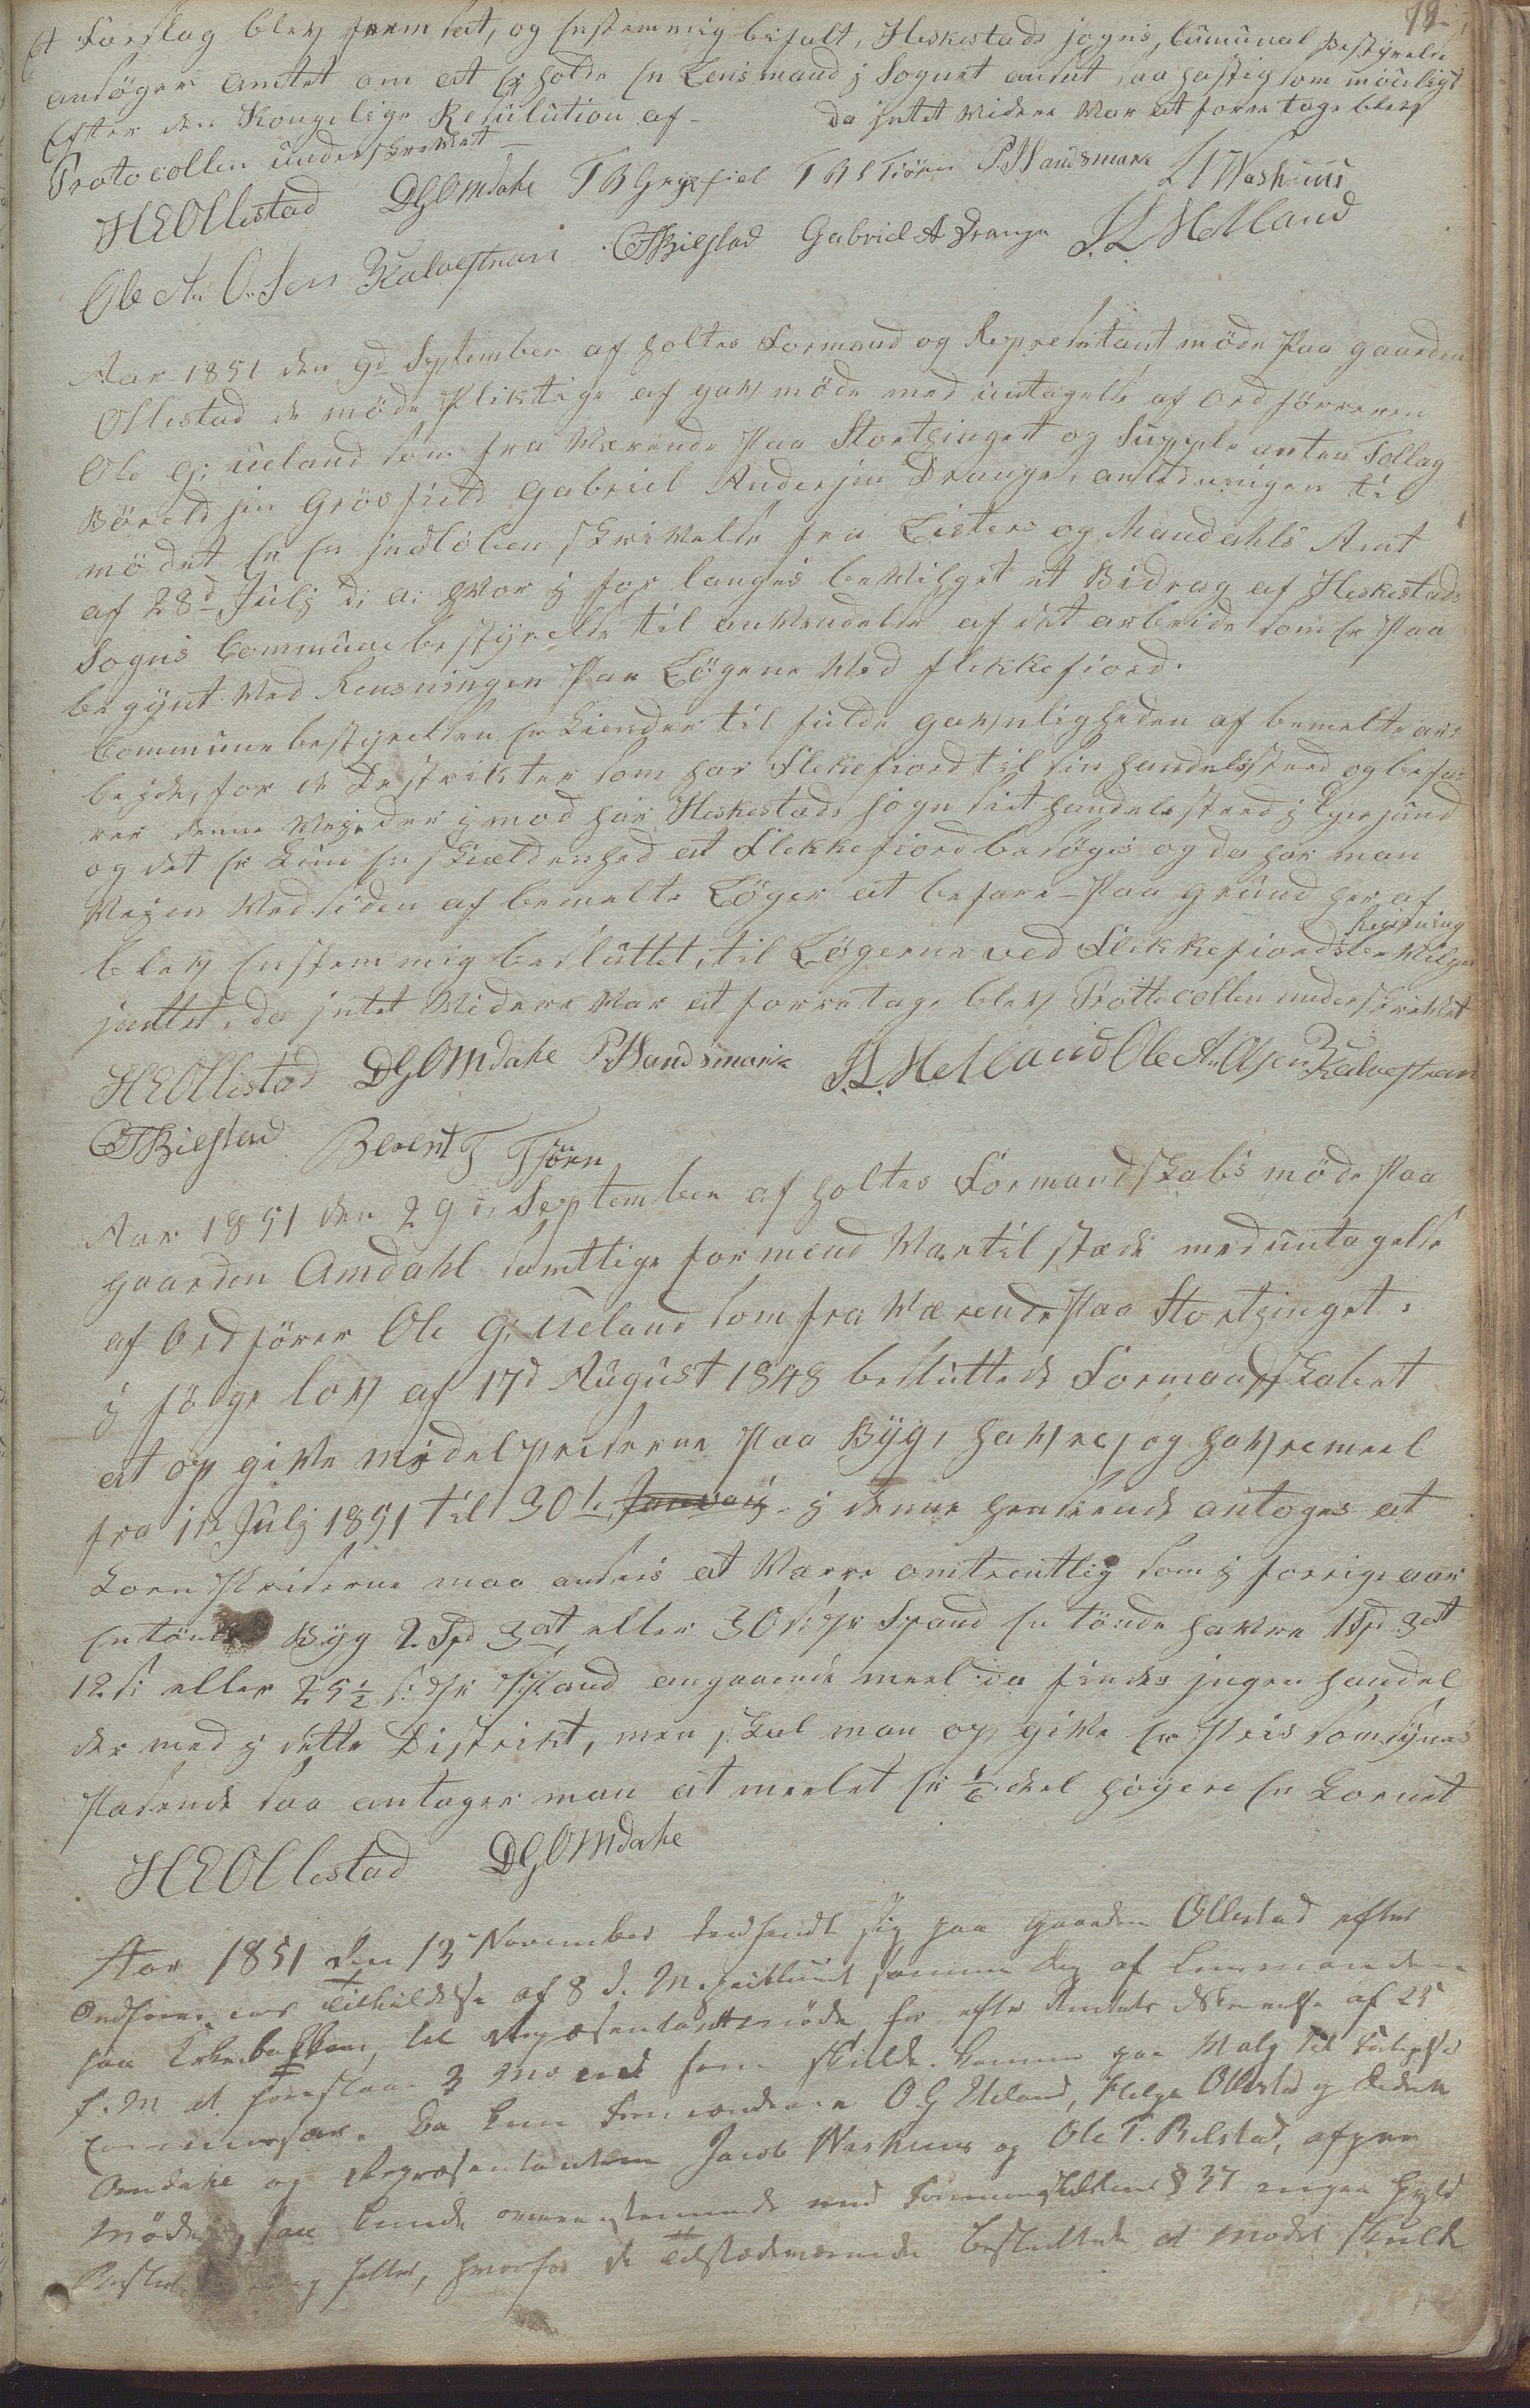 79
Et Forslag blev fremsat, og Enstemmig bifalt, Heskestads sogns, Cumunal bestyrelse
ansöger Amtet om at Er holde En Lensmand j Sognet ansat saa hastig som müeligt
Efter den Kongelige Resülution af - da jntet videre Var at forre tage blev
Protocollen underskrevet
HEOllestad DGOmdahl TB Grøsfiel TBSTiörn P Haudsmark LI Waskuus
Ole A. Olsen Kalvestrari OTBilstad Gabriel A Drange JL Helland
Aar 1851 den 9d September af holtes Formand og Represetant möde Paa gaarden
Ollestad de möde Pliktige af gav möde med untagelse af Ordförreren
Ole G: Ueland som fra Værende Paa Storthinget og Supple anten Tollag
Böreld sen Grösfield Gabriel Andersen Drange, anledningen til
mödet Er En jndlöben skrivelse fra Listers og Mandahls Amt
af 28d Julj d: a: hvor j for langes beVilget et Bidrag af Heskestads
Sogns Commune bestyrelse til anvendelse af det arbeide som Er Paa
begynt Ved Rensningen Paa Lögene Ved flekkefiord.
Commune bestyrelsen Er Kiender til fulde gavnligheden af bemelte ar-
beyde, for de Destrikter som har Flekefiord til sin handelssteed og befar-
rer denne Vej, der j mod har Heskestads sogn sit handelssteed j Egersund
og det Er Kun En skieldenhed at Flekkefiord besöges og da har man
Vejen Ved siden af bemelte Löger at befare - Paa Grund her af
blev Enstemmig besluttet, til Lögerne ved Flekkefiords Rensning be Vilges
jntet, da jntet Videre Var at forretage blev Prottocollen underskrevet
HEOllestad DGOmdahl P Haudsmark JL Helland Ole A. Olsen Kalvestrari
OTBilstad Berent T Tjörn
Aar 1851 den 29d September af holtes Formandskabs möde Paa
gaarden Amdahl samttlige formend Var til stæde med untagelse
af Ordförer Ole G: Ueland som fra Værende Paa Storthinget:
j fölge lov af 17d August 1848 besluttede Formandskabet
at op give midelpriserne Paa Byg, havre, og havremeel
fra 1te Julj 1851 til 30te Janvarj - j denne henseende antages at
Korn Priserne maa ansees at Værre omtrentlig som j forrige aar
En tönde Byg 2 Spd 3 ort eller 30 s: Pr Spand En tönde havre 1 Spd 3 ort
12 s: eller 25½ s: Pr Spand angaaende meel da findes jngen handel
der med j dette Distrikt, men skal man op give En Pris som synes
Pasende saa antages man at meelet Er 1/6 deel höyere En Kornet
HEOllestad DGOmdahl
Aar 1851 den 13 November indfandt sig paa Gaarden Ollestad efter
Ordförerens Tilkaldelse af 8 d. M. samme Dag af Lensmanden
paa Kirkebakken, til Repræsentantmöde for efter Amtets Skrivelse af 25
f. M at foreslaa 3 Mænd som skulde komme paa Valg til Forligelses
Commissær. Da kun Formændene O. G Ueland, Helge Ollestad og Didrik
Omdahl og Repræsentanterne Jacob Waskuus og Ole T. Bilstad, afgave
Möde, saa kunde overensstemmende med Formandskabslovens § 37 ingen gyld
Beslutning fattes, hvorfor de Tilstædeværende besluttede at Mödet skulde